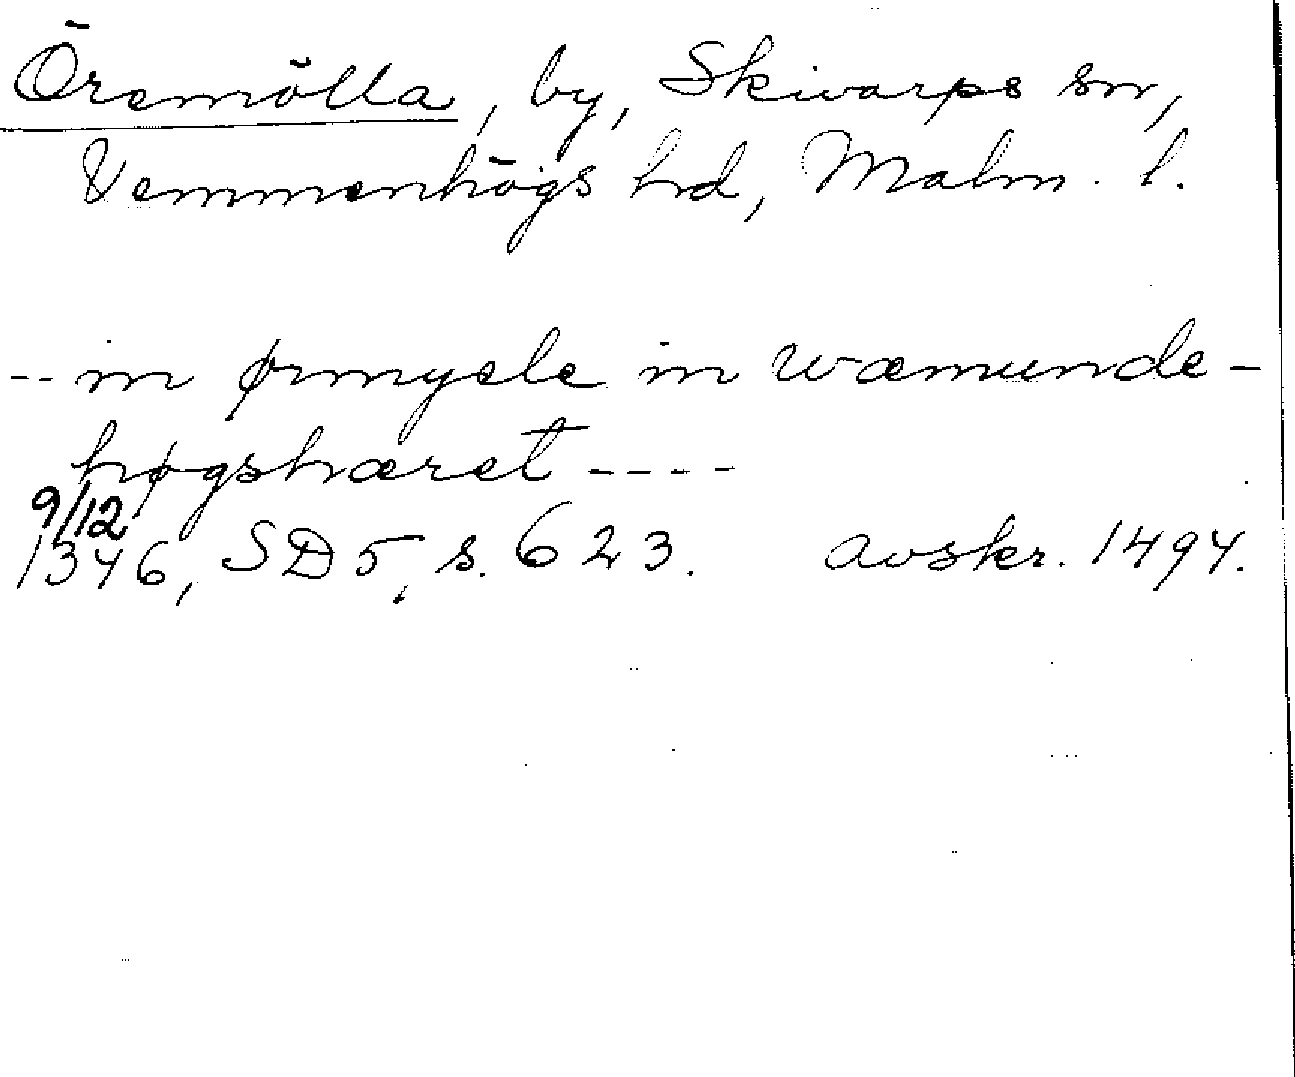 Öremölla, by, Skivarps sn,
Vemmenhögs hd, Malm. l.
-- in ørmyøle in wæmunde-
høgshæret ----
9/12
1346, SD 5, s. 623. avskr. 1494.